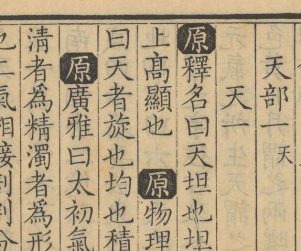 天部一 天
天一
原釋名曰天坦也坦
上高顯也 原物理
曰天者旋也均也積
原廣雅曰太初氣
清者為精濁者為形
也二氣相接剖判分